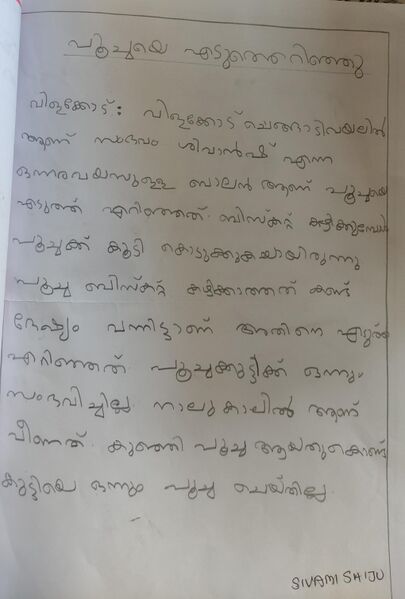 പൂച്ചയെ എടുത്തെറിഞ്ഞു
വിളക്കോട്: വിളക്കോട് ചെങ്ങാടിവയലിൽ
ആണ് സംഭവം ശിവാൻഷ് എന്ന
ഒന്നരവയസുള്ള ബാലൻ ആണ് പൂച്ചയെ
എടുത്ത് എറിഞ്ഞത്. ബിസ്കറ്റ് കഴിക്കുമ്പോൾ
പൂച്ചക്ക് കൂടി കൊടുക്കുകയായിരുന്നു
പൂച്ച ബിസ്കറ്റ് കഴിക്കാത്തത് കണ്ട്
ദേഷ്യം വന്നിട്ടാണ് അതിനെ എടുത്ത്
എറിഞ്ഞത്. പൂച്ചക്കുട്ടിക്ക് ഒന്നും
സംഭവിച്ചില്ല. നാലുകാലിൽ ആണ്
വീണത്. കുഞ്ഞി പൂച്ച ആയതുകൊണ്ട്
കുട്ടിയെ ഒന്നും പൂച്ച ചെയ്തില്ല.
SIVAMI SHIJU